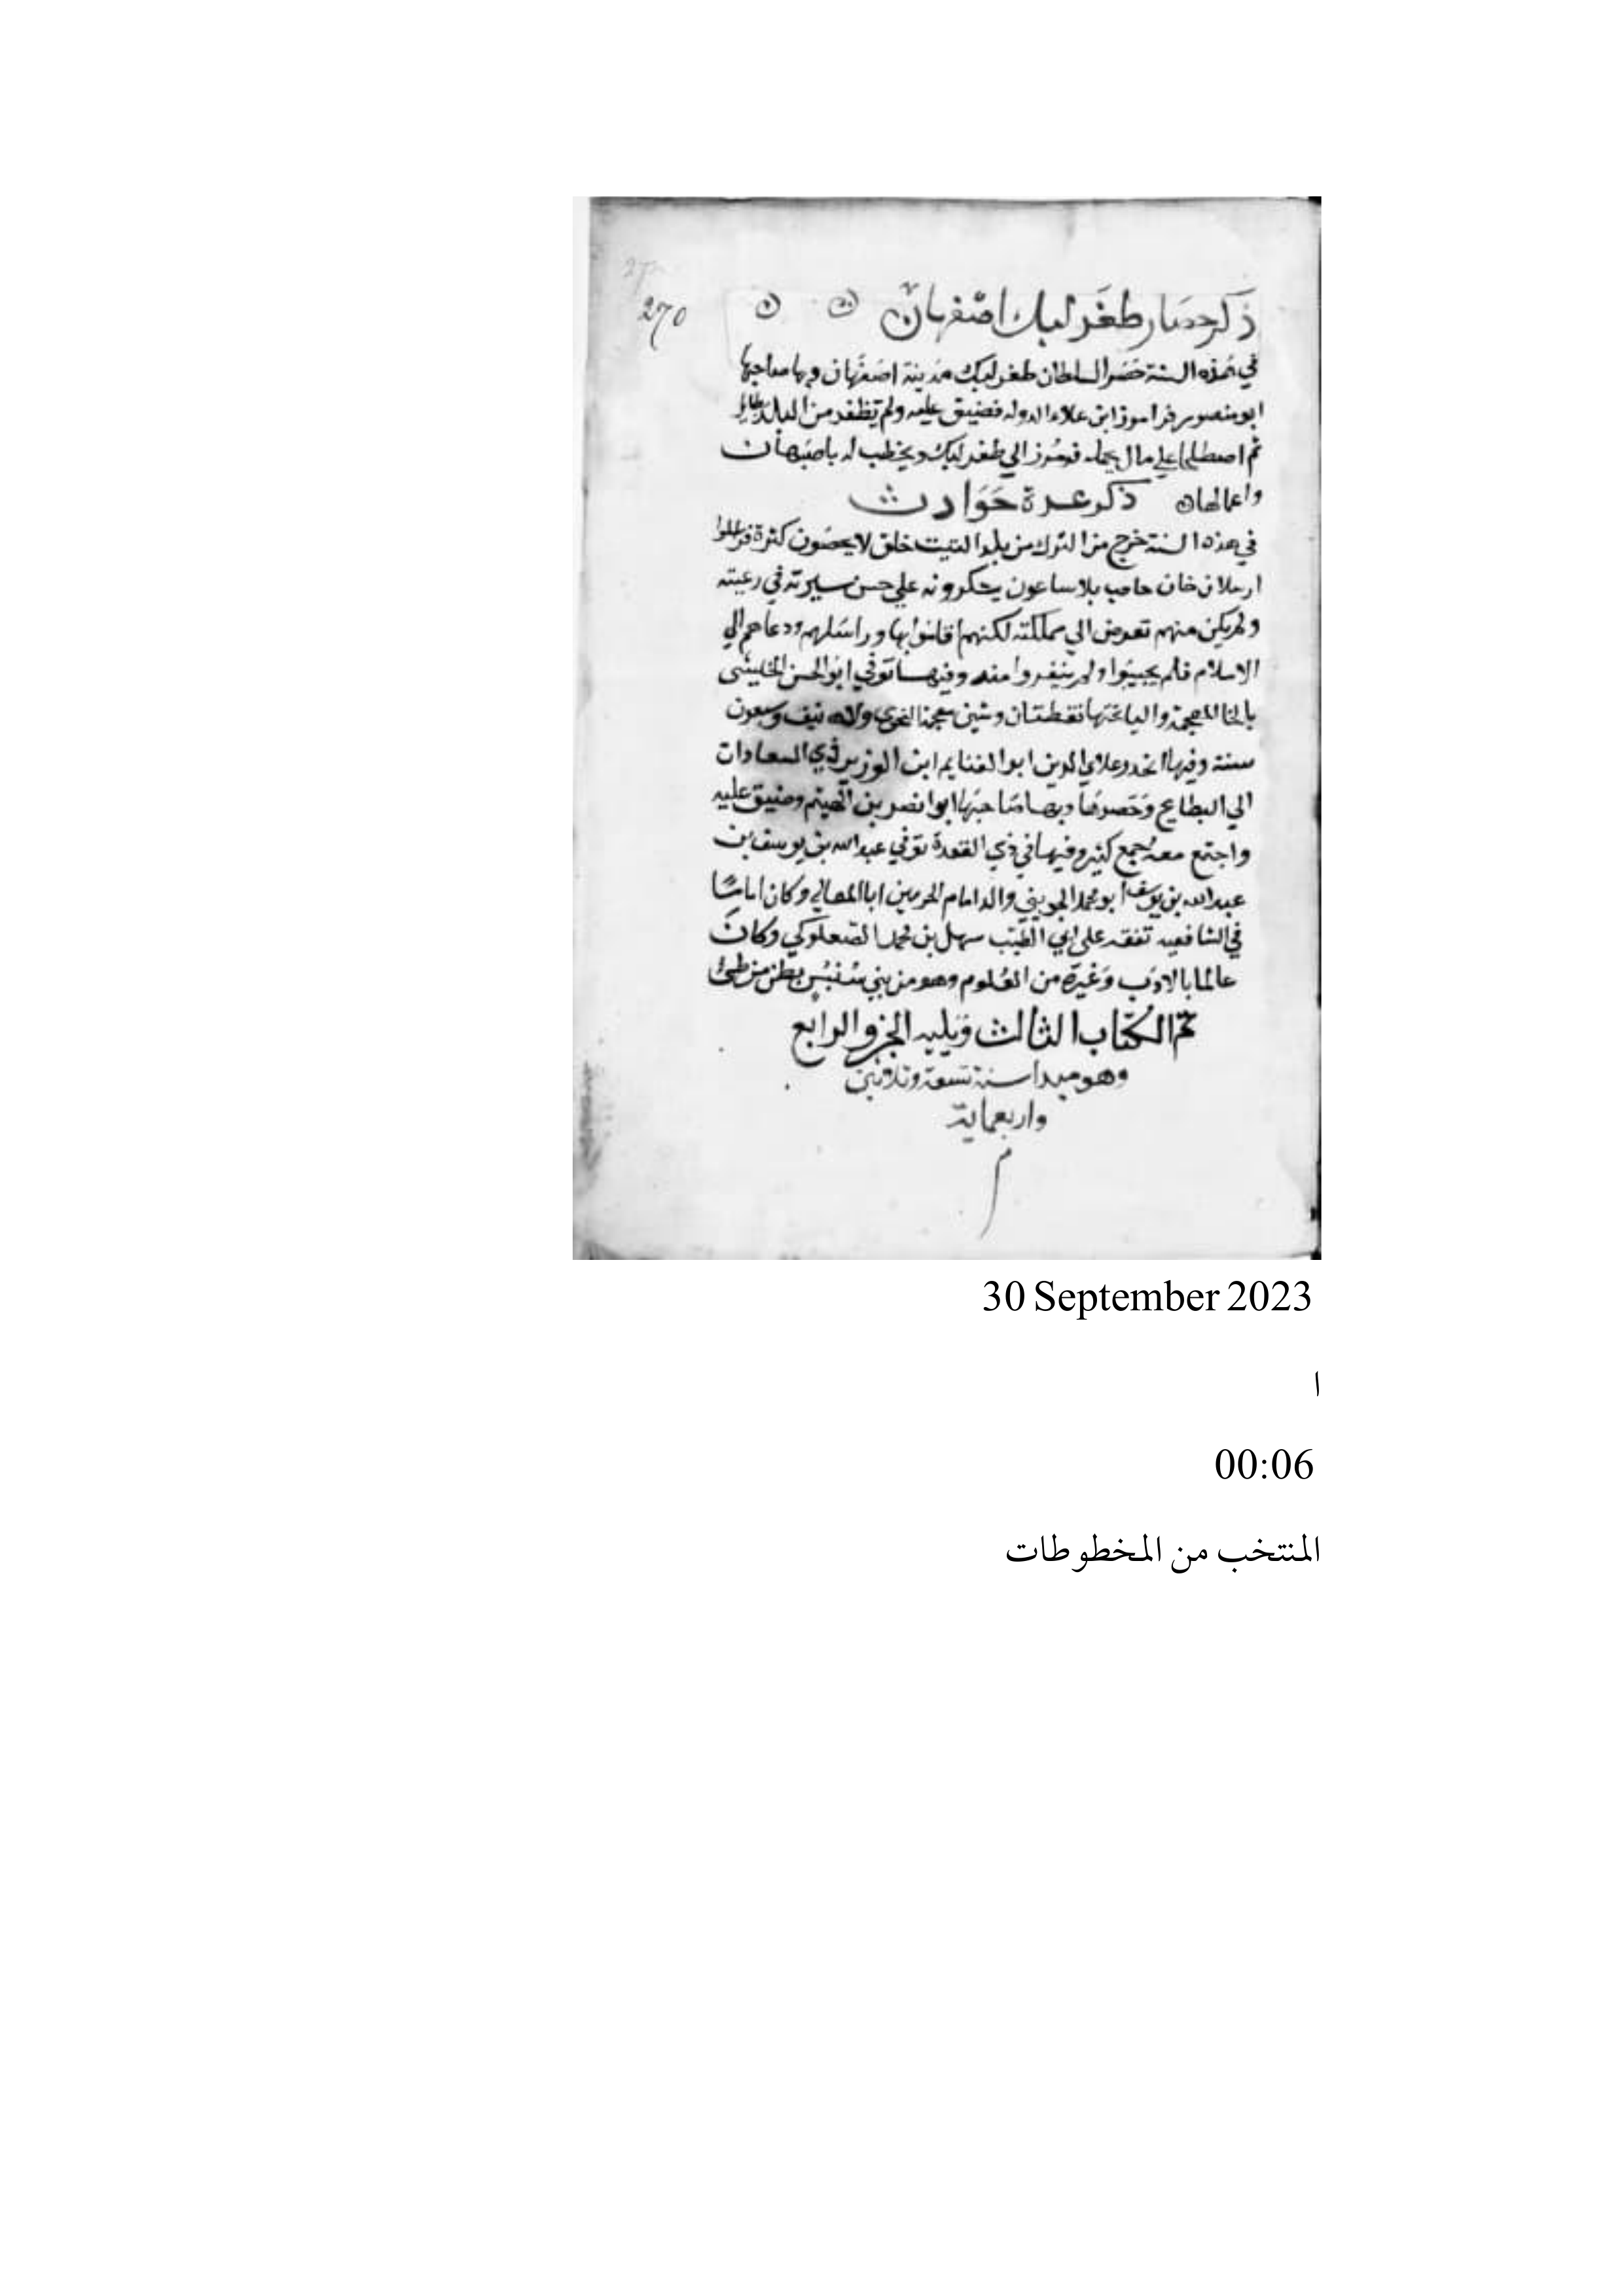 270
ذكر حصار طغرلبك اصفهان
في هذه السنة حصر السلطان طغرلبك مدينة اصفهان وبها صاحبها
ابو منصور فرامرز ابن علاء الدوله فضيق عليه ولم يظفر من البلد بطايل
ثم اصطلحا علي مال يحمله فرامرز الي طغرلبك ويخطب له باصبهان
واعمالها ذكر عدة حوادث
في هذه السنة خرج من الترك من بلد التبت خلق لا يحصون كثرة فراسلوا
ارسلان خان صاحب بلاساغون يشكرونه علي حسن سيرته في رعيته
ولم يكن منهم تعرض الي مملكته لكنهم اقاموا بها وراسلهم ودعاهم الي
الاسلام فلم يجيبوا ولم ينفروا منه وفيها توفي ابو الحسن الخيشي
بالخا المعجمة واليا تحتها نقطتان وشين معجمة النحوي وله نيف وسبعون
سنة وفيها انحدر علاي الدين ابو الغنايم ابن الوزير ذي السعادات
الي البطايح وحصرها وبها صاحبها ابو نصر بن الهيثم وضيق عليه
واجتمع معه جمع كثير وفيها في ذي القعدة توفي عبد الله بن يوسف بن
عبد الله بن يوسف ابو محمد الجويني والد امام الحرمين ابا المعالي وكان اماما
في الشافعيه تفقه علي ابي الطيب سهل بن محمد الصعلوكي وكان
عالما بالادب وغيره من العلوم وهو من بني سنبس بطن من طيئ
تم الكتاب الثالث ويليه الجزو الرابع
وهو مبدا سنة تسعة وثلاثين
واربعماية
م
30 September 2023
ا
00:06
المنتخب من المخطوطات